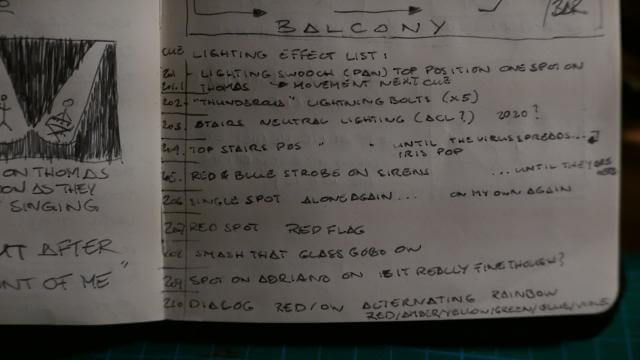 BAR
BALCONY
CUE LIGHTING EFFECT LIST:
201 - LIGHTING SWOOCH (PAN) TOP POSITION ONE SPOT ON
201.1 THOMAS → MOVEMENT NEXT CUE
202 - "THUNDEROUS" LIGHTNING BOLTS (x5)
203. STAIRS NEUTRAL LIGHTING (ACL?) 2020?
204. TOP STAIRS POS " " UNTIL THE VIRUS SPREADS...
IRIS POP
205. RED & BLUE STROBE ON SIRENS ...UNTIL THEY ARE
HERE
206 SINGLE SPOT ALONE AGAIN... ON MY OWN AGAIN
207 RED SPOT RED FLAG
208 SMASH THAT GLASS GOBO ON
209 SPOT ON ADRIANO ON IS IT REALLY FINE THOUGH?
210 DIALOG RED/OW ALTERNATING RAINBOW
RED/AMBER/YELLOW/GREEN/BLUE/
ON THOMAS
ON AS THEY
SINGING
AFTER
OF ME"